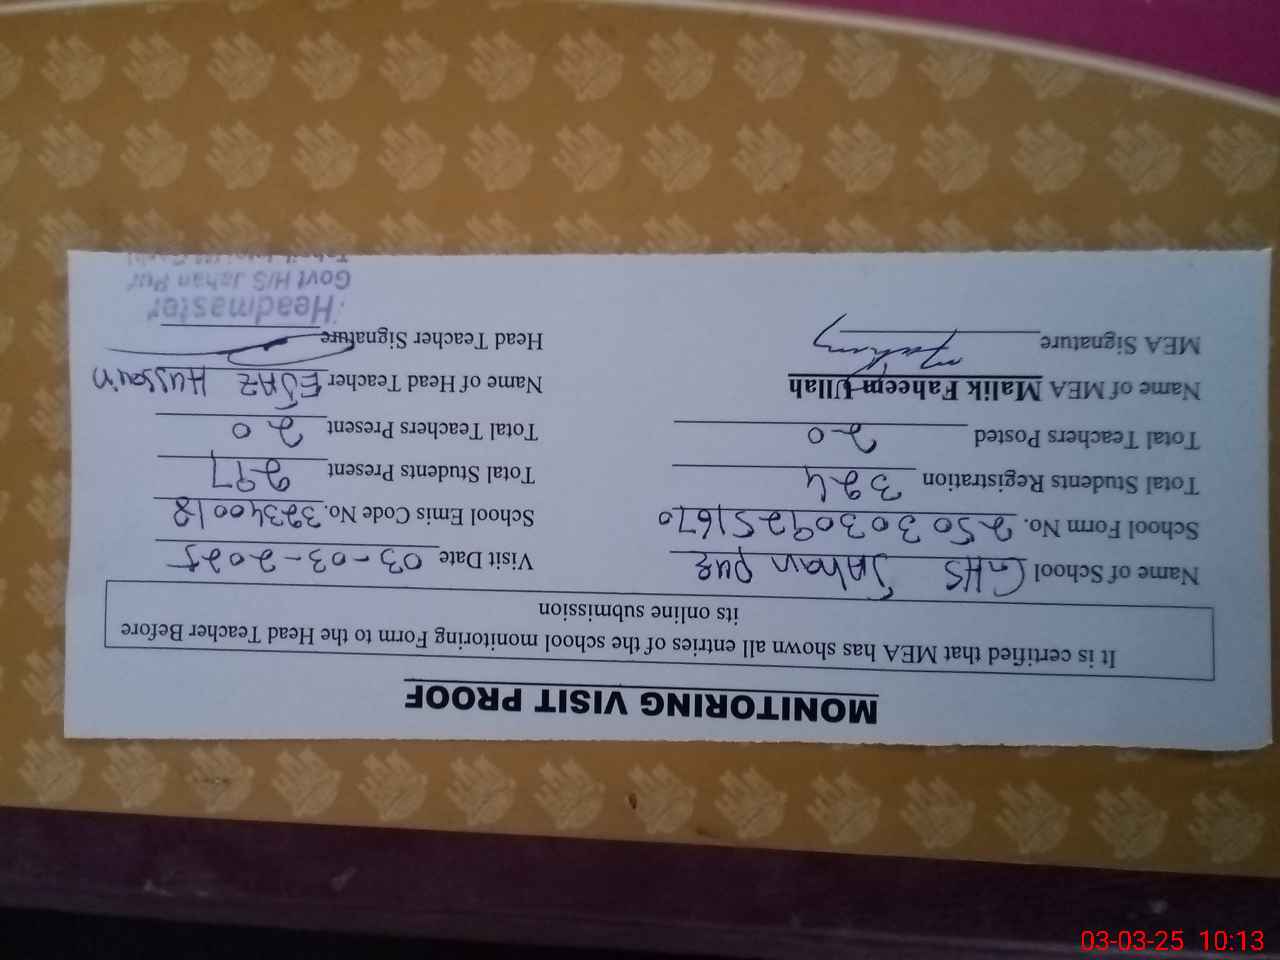 MONITORING VISIT PROOF
It is certified that MEA has shown all entries of the school monitoring Form to the Head Teacher Before
its online submission
Name of School GHS Jahan pur Visit Date 03-03-2025
School Form No. 25030309251670 School Emis Code No. 32340018
Total Students Registration 324 Total Students Present 297
Total Teachers Posted 20 Total Teachers Present 20
Name of MEA Malik Faheem Ullah Name of Head Teacher EJAZ Hussain
MEA Signature Head Teacher Signature
Headmaster
Govt H/S Jahan Pur
03-03-25 10:13